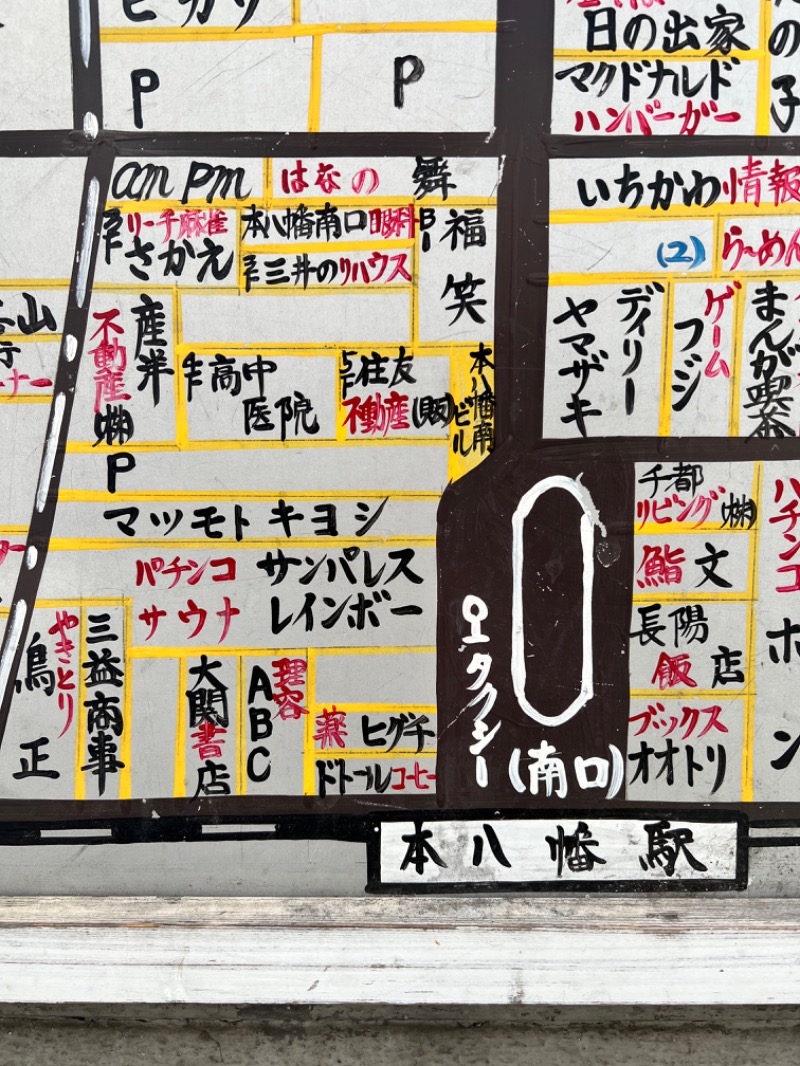 ヒカリ
P
P
日の出家
マクドナルド
ハンバーガー
の
子
am pm
はなの舞
B1
福笑
リーチ麻雀
さかえ
本八幡南口眼科
三井のリハウス
いちかわ情報
(2)
らーめん
山
不動産㈱
産半
4F高中
医院
5F住友
不動産(販)
本八幡南
ビル
ヤマザキ
デイリー
フジ
ゲーム
まんが喫茶
P
マツモトキヨシ
パチンコ
サウナ
サンパレス
レインボー
千都
リビング㈱
鮨文
長陽
飯店
ブックス
オオトリ
パチンコ
ホ
ン
やきとり
鳥正
三益商事
大関書店
ABC
理容
薬 ヒグチ
ドトールコーヒー
タクシー
(南口)
本八幡駅